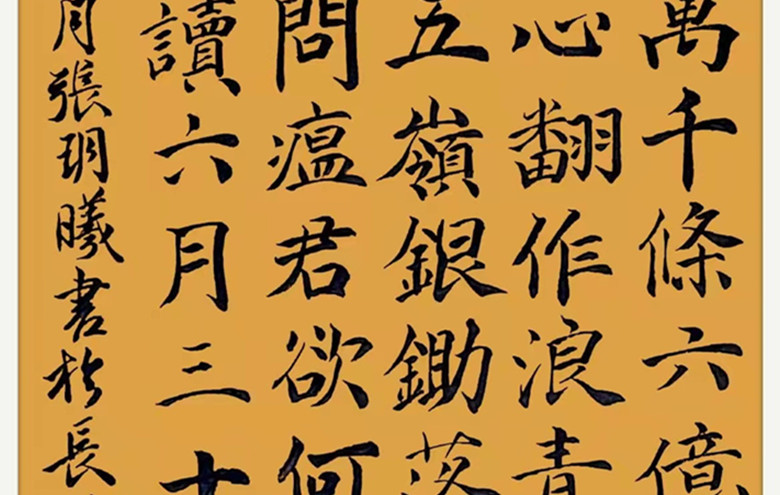 萬千條六億
心翻作浪青
五嶺銀鋤落
問瘟君欲何
讀六月三十
月張玥曦書於長